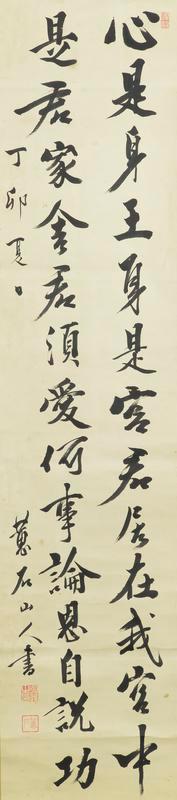 心是身王身是宮君居在我宮中
是君家舍君須愛何事論恩自說功
丁卯夏日
蕙石山人書